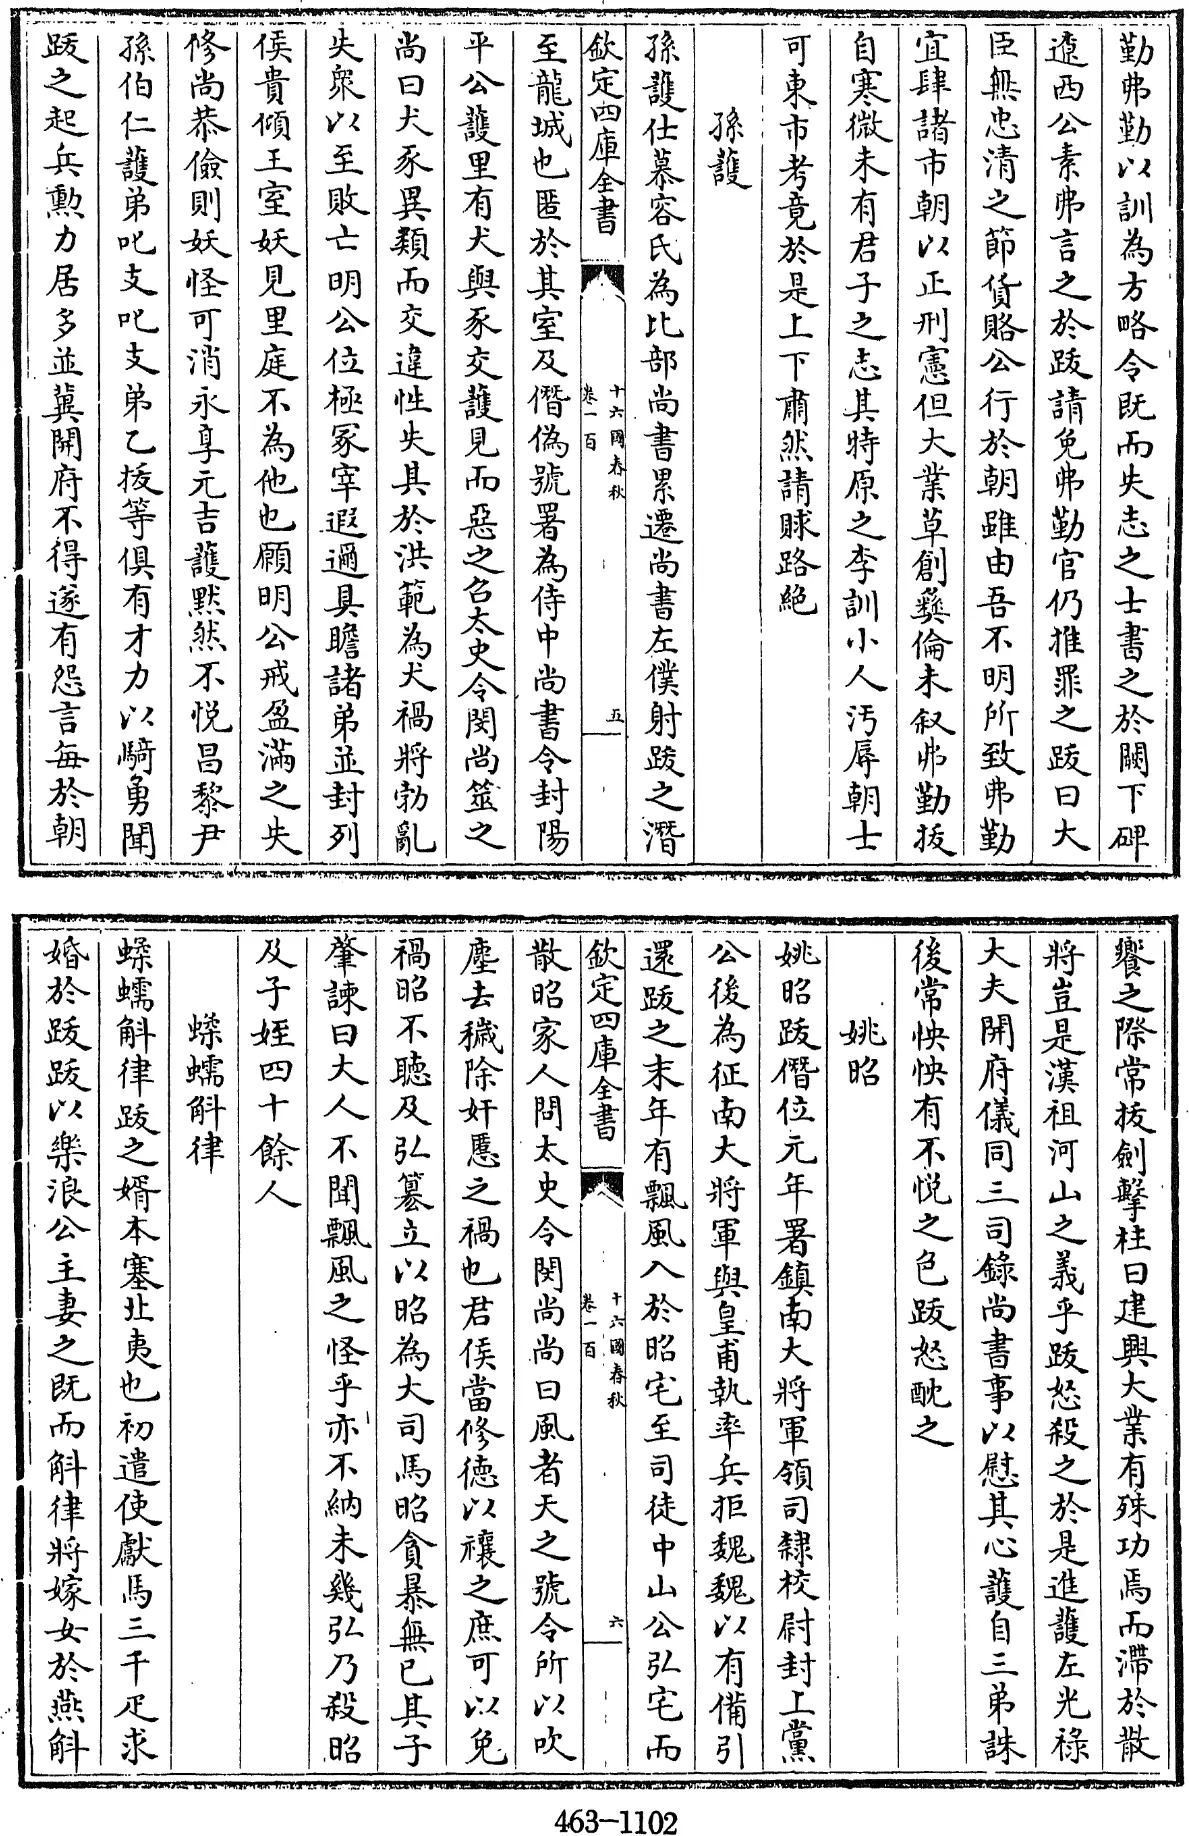 勤弗勤以訓為方略令既而失志之士書之於闕下碑
遼西公素弗言之於跋請免弗勤官仍推罪之跋曰大
臣無忠清之節貨賂公行於朝雖由吾不明所致弗勤
宜肆諸市朝以正刑憲但大業草創彝倫未叙弗勤拔
自寒微未有君子之志其特原之李訓小人汚辱朝士
可東市考竟於是上下肅然請賕路絶
孫護
孫護仕慕容氏為比部尚書累遷尚書左僕射跋之潛
欽定四庫全書
十六國春秋
卷一百
五
至龍城也匿於其室及僭偽號署為侍中尚書令封陽
平公護里有犬與豕交護見而惡之召太史令閔尚筮之
尚曰犬豕異類而交違性失其於洪範為犬禍將勃亂
失衆以至敗亡明公位極冢宰遐邇具瞻諸弟並封列
侯貴傾王室妖見里庭不為他也願明公戒盈滿之失
修尚恭儉則妖怪可消永享元吉護黙然不悦昌黎尹
孫伯仁護弟叱支叱支弟乙拔等俱有才力以驍勇聞
跋之起兵勲力居多並冀開府不得遂有怨言每於朝
饗之際常拔劍擊柱曰建興大業有殊功焉而滯於散
將豈是漢祖河山之義乎跋怒殺之於是進護左光禄
大夫開府儀同三司錄尚書事以慰其心護自三弟誅
後常怏怏有不悦之色跋怒酖之
姚昭
姚昭跋僭位元年署鎮南大將軍領司隸校尉封上黨
公後為征南大將軍與皇甫執率兵拒魏魏以有備引
還跋之末年有飄風入於昭宅至司徒中山公弘宅而
欽定四庫全書
十六國春秋
卷一百
六
散昭家人問太史令閔尚尚曰風者天之號令所以吹
塵去穢除奸慝之禍也君侯當修德以禳之庶可以免
禍昭不聽及弘簒立以昭為大司馬昭貪暴無已其子
肇諫曰大人不聞飄風之怪乎亦不納未幾弘乃殺昭
及子姪四十餘人
蝚蠕斛律
蝚蠕斛律跋之婿本塞北夷也初遣使獻馬三千疋求
婚於跋跋以樂浪公主妻之既而斛律將嫁女於燕斛
463-1102